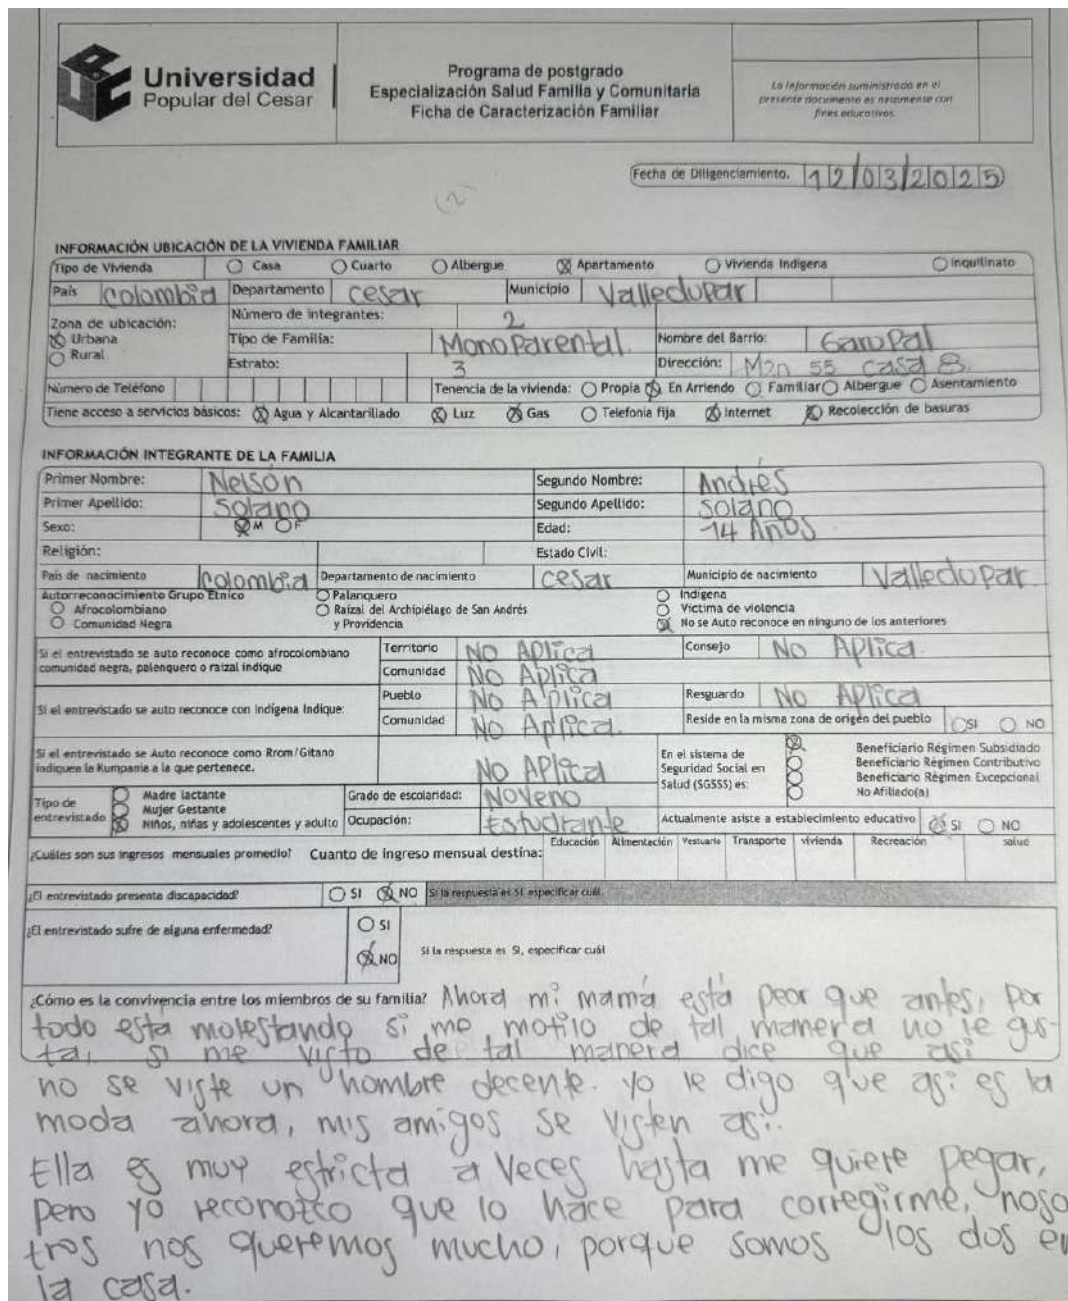 Universidad
Popular del Cesar
Programa de postgrado
Especialización Salud Familia y Comunitaria
Ficha de Caracterización Familiar
La información suministrada en el
presente documento es netamente con
fines educativos.
Fecha de Diligenciamiento. 12/03/2025
(2)
INFORMACIÓN UBICACIÓN DE LA VIVIENDA FAMILIAR
Tipo de Vivienda Casa Cuarto Albergue Apartamento Vivienda Indigena Inquilinato
País Colombia Departamento cesar Municipio Valledupar
Zona de ubicación: Número de integrantes: 2
Urbana Tipo de Familia: Monoparental Nombre del Barrio:
Rural Estrato: 3 Dirección: Mzn 55 casa 8
Número de Teléfono Tenencia de la vivienda: Propia En Arriendo Familiar Albergue Asentamiento
Tiene acceso a servicios básicos: Agua y Alcantarillado Luz Gas Telefonía fija Internet Recolección de basuras
INFORMACIÓN INTEGRANTE DE LA FAMILIA
Primer Nombre: Nelson Segundo Nombre: Andrés
Primer Apellido: Solano Segundo Apellido: Solano
Sexo: M F Edad: 14 Años
Religión: Estado Civil:
País de nacimiento Colombia Departamento de nacimiento cesar Municipio de nacimiento Valledupar
Autorreconocimiento Grupo Étnico Palanquero Indigena
Afrocolombiano Raizal del Archipiélago de San Andrés Victima de violencia
Comunidad Negra y Providencia No se Auto reconoce en ninguno de los anteriores
Si el entrevistado se auto reconoce como afrocolombiano Territorio No Aplica Consejo No Aplica.
comunidad negra, palenquero o raizal indique Comunidad No Aplica
Si el entrevistado se auto reconoce con Indígena Indique: Pueblo No Aplica Resguardo No Aplica
Comunidad No Aplica. Reside en la misma zona de origen del pueblo SI NO
Si el entrevistado se Auto reconoce como Rrom/Gitano En el sistema de Beneficiario Régimen Subsidiado
indiquen la Kumpania a la que pertenece. No Aplica Seguridad Social en Beneficiario Régimen Contributivo
Salud (SGSSS) es: Beneficiario Régimen Excepcional
No Afiliado(a)
Tipo de entrevistado Madre lactante Grado de escolaridad: Noveno
Mujer Gestante
Niños, niñas y adolescentes y adulto Ocupación: Estudiante Actualmente asiste a establecimiento educativo SI NO
¿Cuáles son sus ingresos mensuales promedio? Cuanto de ingreso mensual destina: Educación Alimentación Vestuario Transporte vivienda Recreación salud
¿El entrevistado presenta discapacidad? SI NO Si la respuesta es SI, especificar cuál
¿El entrevistado sufre de alguna enfermedad? SI
NO Si la respuesta es SI, especificar cuál
¿Cómo es la convivencia entre los miembros de su familia? Ahora mi mamá está peor que antes, por
todo esta molestando si me motilo de tal manera no le gus-
ta, si me visto de tal manera dice que asi
no se viste un hombre decente. yo le digo que asi es la
moda ahora, mis amigos se visten asi.
Ella es muy estricta a veces hasta me quiere pegar,
pero yo reconozco que lo hace para corregirme, noso
tros nos queremos mucho, porque somos los dos en
la casa.